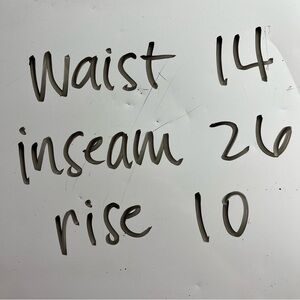 Waist 14
inseam 26
rise 10